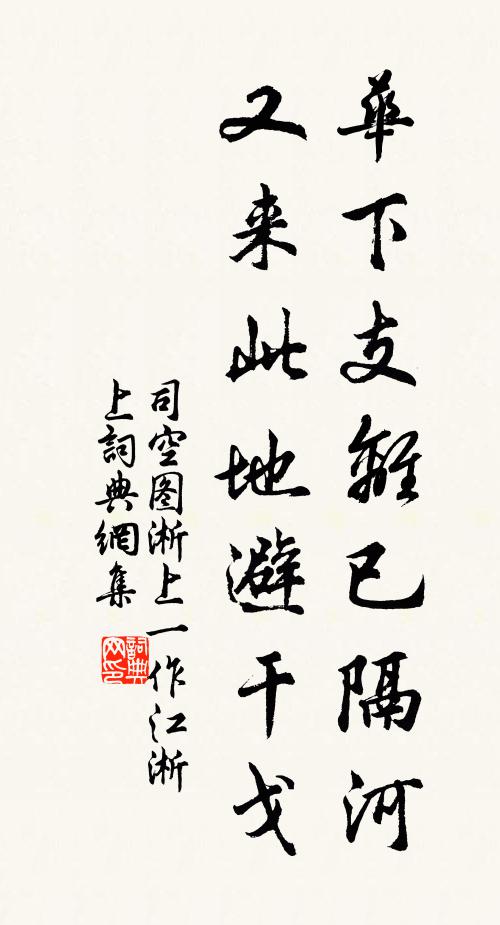 華下支離已隔河
又来此地避干戈
司空图淅上一作江淅
上詞典網集
詞典网印